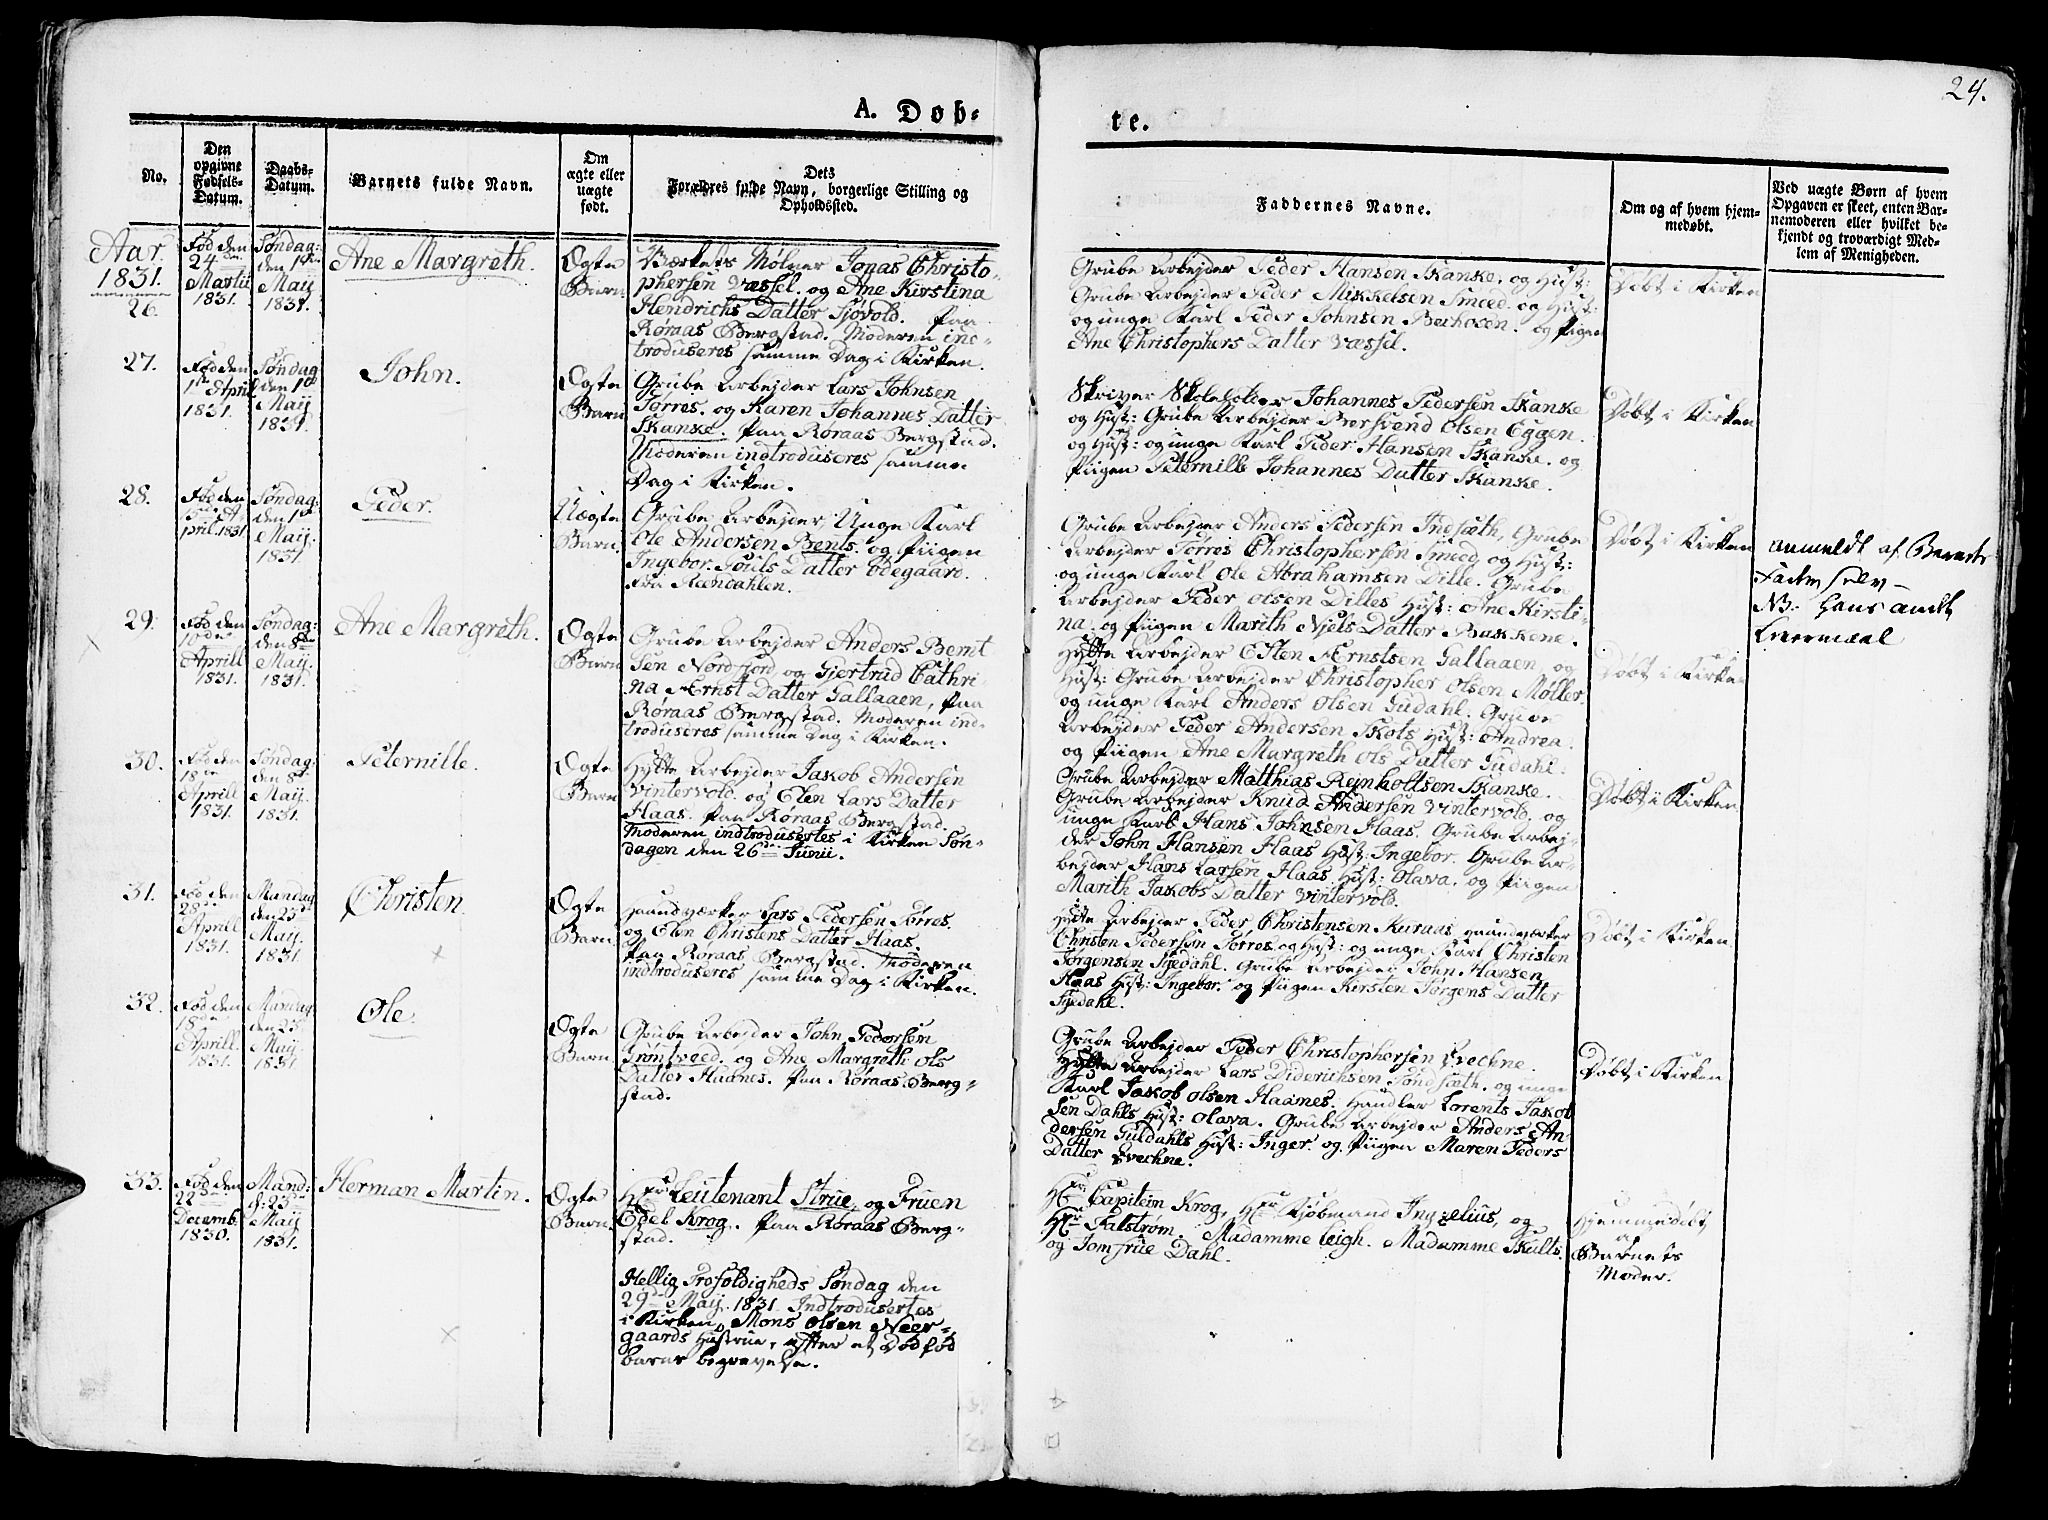 24.
A. Døb-
te.
No.
Den opgivne Fødsels-Datum.
Daabs-Datum.
Barnets fulde Navn.
Om ægte eller uægte født.
Dets Forældres fulde Navn, borgerlige Stilling og Opholdssted.
Faddernes Navne.
Om og af hvem hjem-medøbt.
Ved uægte Børn af hvem Opgaven er skeet, enten Bar-nemoderen eller hvilket be-kjendt og troværdigt Med-lem af Menigheden.
Aar
1831.
26.
Fød den
24de
Martii
1831.
Søndag:
den 1ste
Maij
1831.
Ane Margreth.
Ægte
Barn.
Værkets Mølner Jonas Christo-
phersen Væssel. og Ane Kirstina
Hendrichs Datter Sjøvold. paa
Røraas Bergstad. Moderen inc-
troduseres samme Dag i Kirken.
Grube Arbejder Peder Hansen Skanke. og Hust:
Grube Arbejder Peder Mikkelsen Smed. og Hust:
og unge Karl Peder Johnsen Berhosen. og Pigen
Ane Christophers Datter Væssel.
Døbt i Kirken
27.
Fød den
1ste April
1831.
Søndag
den 1ste
Maij
1831.
John.
Ægte
Barn.
Grube Arbejder Lars Johnsen
Tørres. og Karen Johannes Datter
Skanke. paa Røraas Bergstad.
Moderen indtroduseres samme
Dag i Kirken.
Skriver Skoleholder Johannes Pedersen Skanke
og Hust: Grube Arbejder Bersvend Olsen Eggen.
og Hust: og unge Karl Peder Hansen Skanke. og
Piigen Peternille Johannes Datter Skanke.
Døbt i Kirken
28.
Fød den
15de A-
pril. 1831.
Søndag:
den 1ste
Maij.
1831.
Peder.
Uægte
Barn.
Grube Arbejder Unge Karl
Ole Andersen Bents. og Piigen
Ingebor Pouls Datter Ødegaard.
fra Reendahlen.
Grube Arbejder Anders Pedersen Indsæth, Grube
Arbejder Tørres Christophersen Smed og Hust:
og unge Karl Ole Abrahamsen Dille. Grube
Arbejder Peder Olsen Dilles Hust: Ane Kirsti-
na. og Piigen Marith Njels Datter Bakkene.
Døbt i Kirken
anmeldt af Barnets
Fader selv –
NB. Hans Andet
Leiermaal
29.
Fød den
10de
Aprill
1831.
Søndag:
den 8de
Maij.
1831.
Ane Margreth.
Ægte
Barn
Grube Arbejder Anders Bernt
Sen Nordfjord og Gjertrud Cathri-
na Ernst Datter Gallaaen, paa
Røraas Bergstad. Moderen ind-
troduseres samme Dag i Kirken.
Hytte Arbejder Esten Ernstsen Gallaaen, og
Hust: Grube Arbejder Christopher Olsen Møller.
og unge Karl Anders Olsen Gudahl. Grube
Arbejder Peder Andersen Skots Hust: Andrea.
og Piigen Ane Margreth Ols Datter Gudahl.
Døbt i Kirken
30.
Fød den
18de
Aprill
1831.
Søndag:
den 8de
Maij.
1831.
Peternille.
Ægte
Barn
Hytte Arbejder Jakob Andersen
Vintervold. og Elen Lars Datter
Haas. paa Røraas Bergstad.
Moderen indtrodusertes i Kirken Søn-
dagen den 26de Junii.
Grube Arbejder Matthias Rejnholtsen Skanke.
Grube Arbejder Knud Andersen Vintervold. og
unge Karl Hans Johnsen Haas. Grube Arbej-
der John Hansen Haas Hust: Ingebor. Grube Ar-
bejder Hans Larsen Haas Hust: Olava. og Piigen
Marith Jakobs Datter Vintervold.
Døbt i Kirken
31.
Fød den
28de
Aprill
1831.
Mandag
den 23de
Maij.
1831.
Christen.
Ægte
Barn.
Haandværker Lars Pedersen Tørres.
og Elen Christens Datter Haas.
paa Røraas Bergstad. Moderen
indtroduseres samme Dag i Kirken.
Hytte Arbejder Peder Christensen Kuraas Haandværker
Christen Pedersen Tørres og Hust: og unge Karl Christen
Jørgensen Sjedahl. Grube Arbejder John Hansen
Haas Hust: Ingebor. og Piigen Kirsten Jørgens Datter
Sjedahl.
Døbt i Kirken
32.
Fød den
18de
Aprill.
1831.
Mandag
den 23.
Maij
1831.
Ole.
Ægte
Barn.
Grube Arbejder John Pedersen
Grøntvæd. og Ane Margreth. Ols
Datter Haanes. paa Røraas Berg-
stad.
Grube Arbejder Peder Christophersen Evechne.
Hytte Arbejder Lars Diderichsen Sondsæth. og unge
Karl Jakob Olsen Haames. Handler Lorents Jakob
Sen Dahls Hust: Olava. Grube Arbejder Anders An-
dersen Guldahls Hust: Inger. og Piigen Maren Peders
Datter Evechne.
Døbt i Kirken
33.
Fød den
22de
Decemb.
1830.
Mand:
d: 23de
Maij
1831.
Herman Martin.
Ægte
Barn.
Hr Leutenant Strue, og Fruen
Edel Krog. paa Røraas Berg-
stad.
Hr Capitein Krog, Hr Kjøbmand Ingzelius, og
Hr Falstrøm. Madamme Leigh. Madamme Skults.
og Jomfrue Dahl.
Hjemmedøbt
af
Barnets
Moder.
Hellig Trefoldigheds Søndag den
29de Maij. 1831. Indtrodusertes
i Kirken, Mons Olsen Neer-
gaards Hustrue, efter et Dødfød
barns begravelse.